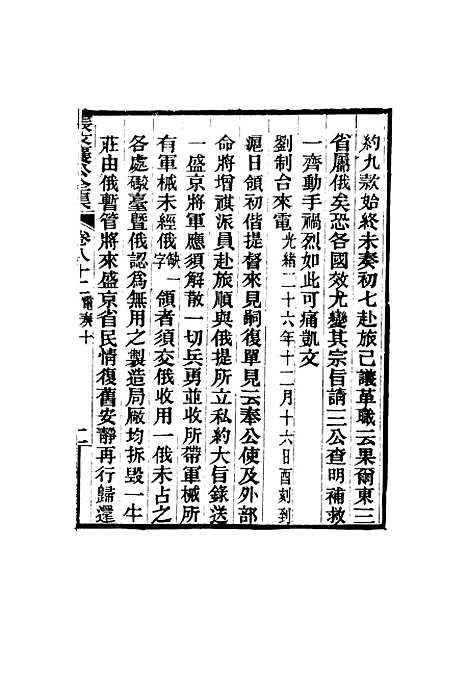 約九款始終未奏初七赴旅已議革職云果爾東三
省屬俄矣恐各國效尤變其宗旨請三公查明補救
一齊動手禍烈如此可痛凱文
劉制台來電光緒二十六年十二月十六日酉刻到
滬日領初偕提督來見嗣復單見云奉公使及外部
命將增祺派員赴旅順與俄提所立私約大旨錄送
一盛京將軍應須解散一切兵勇並收所帶軍械所
有軍械未經俄缺一字領者須交俄收用一俄未占之
各處礮臺暨俄認爲無用之製造局廠均拆毀一牛
莊由俄暫管將來盛京省民情復舊安靜再行歸還
卷八十二 電奏十